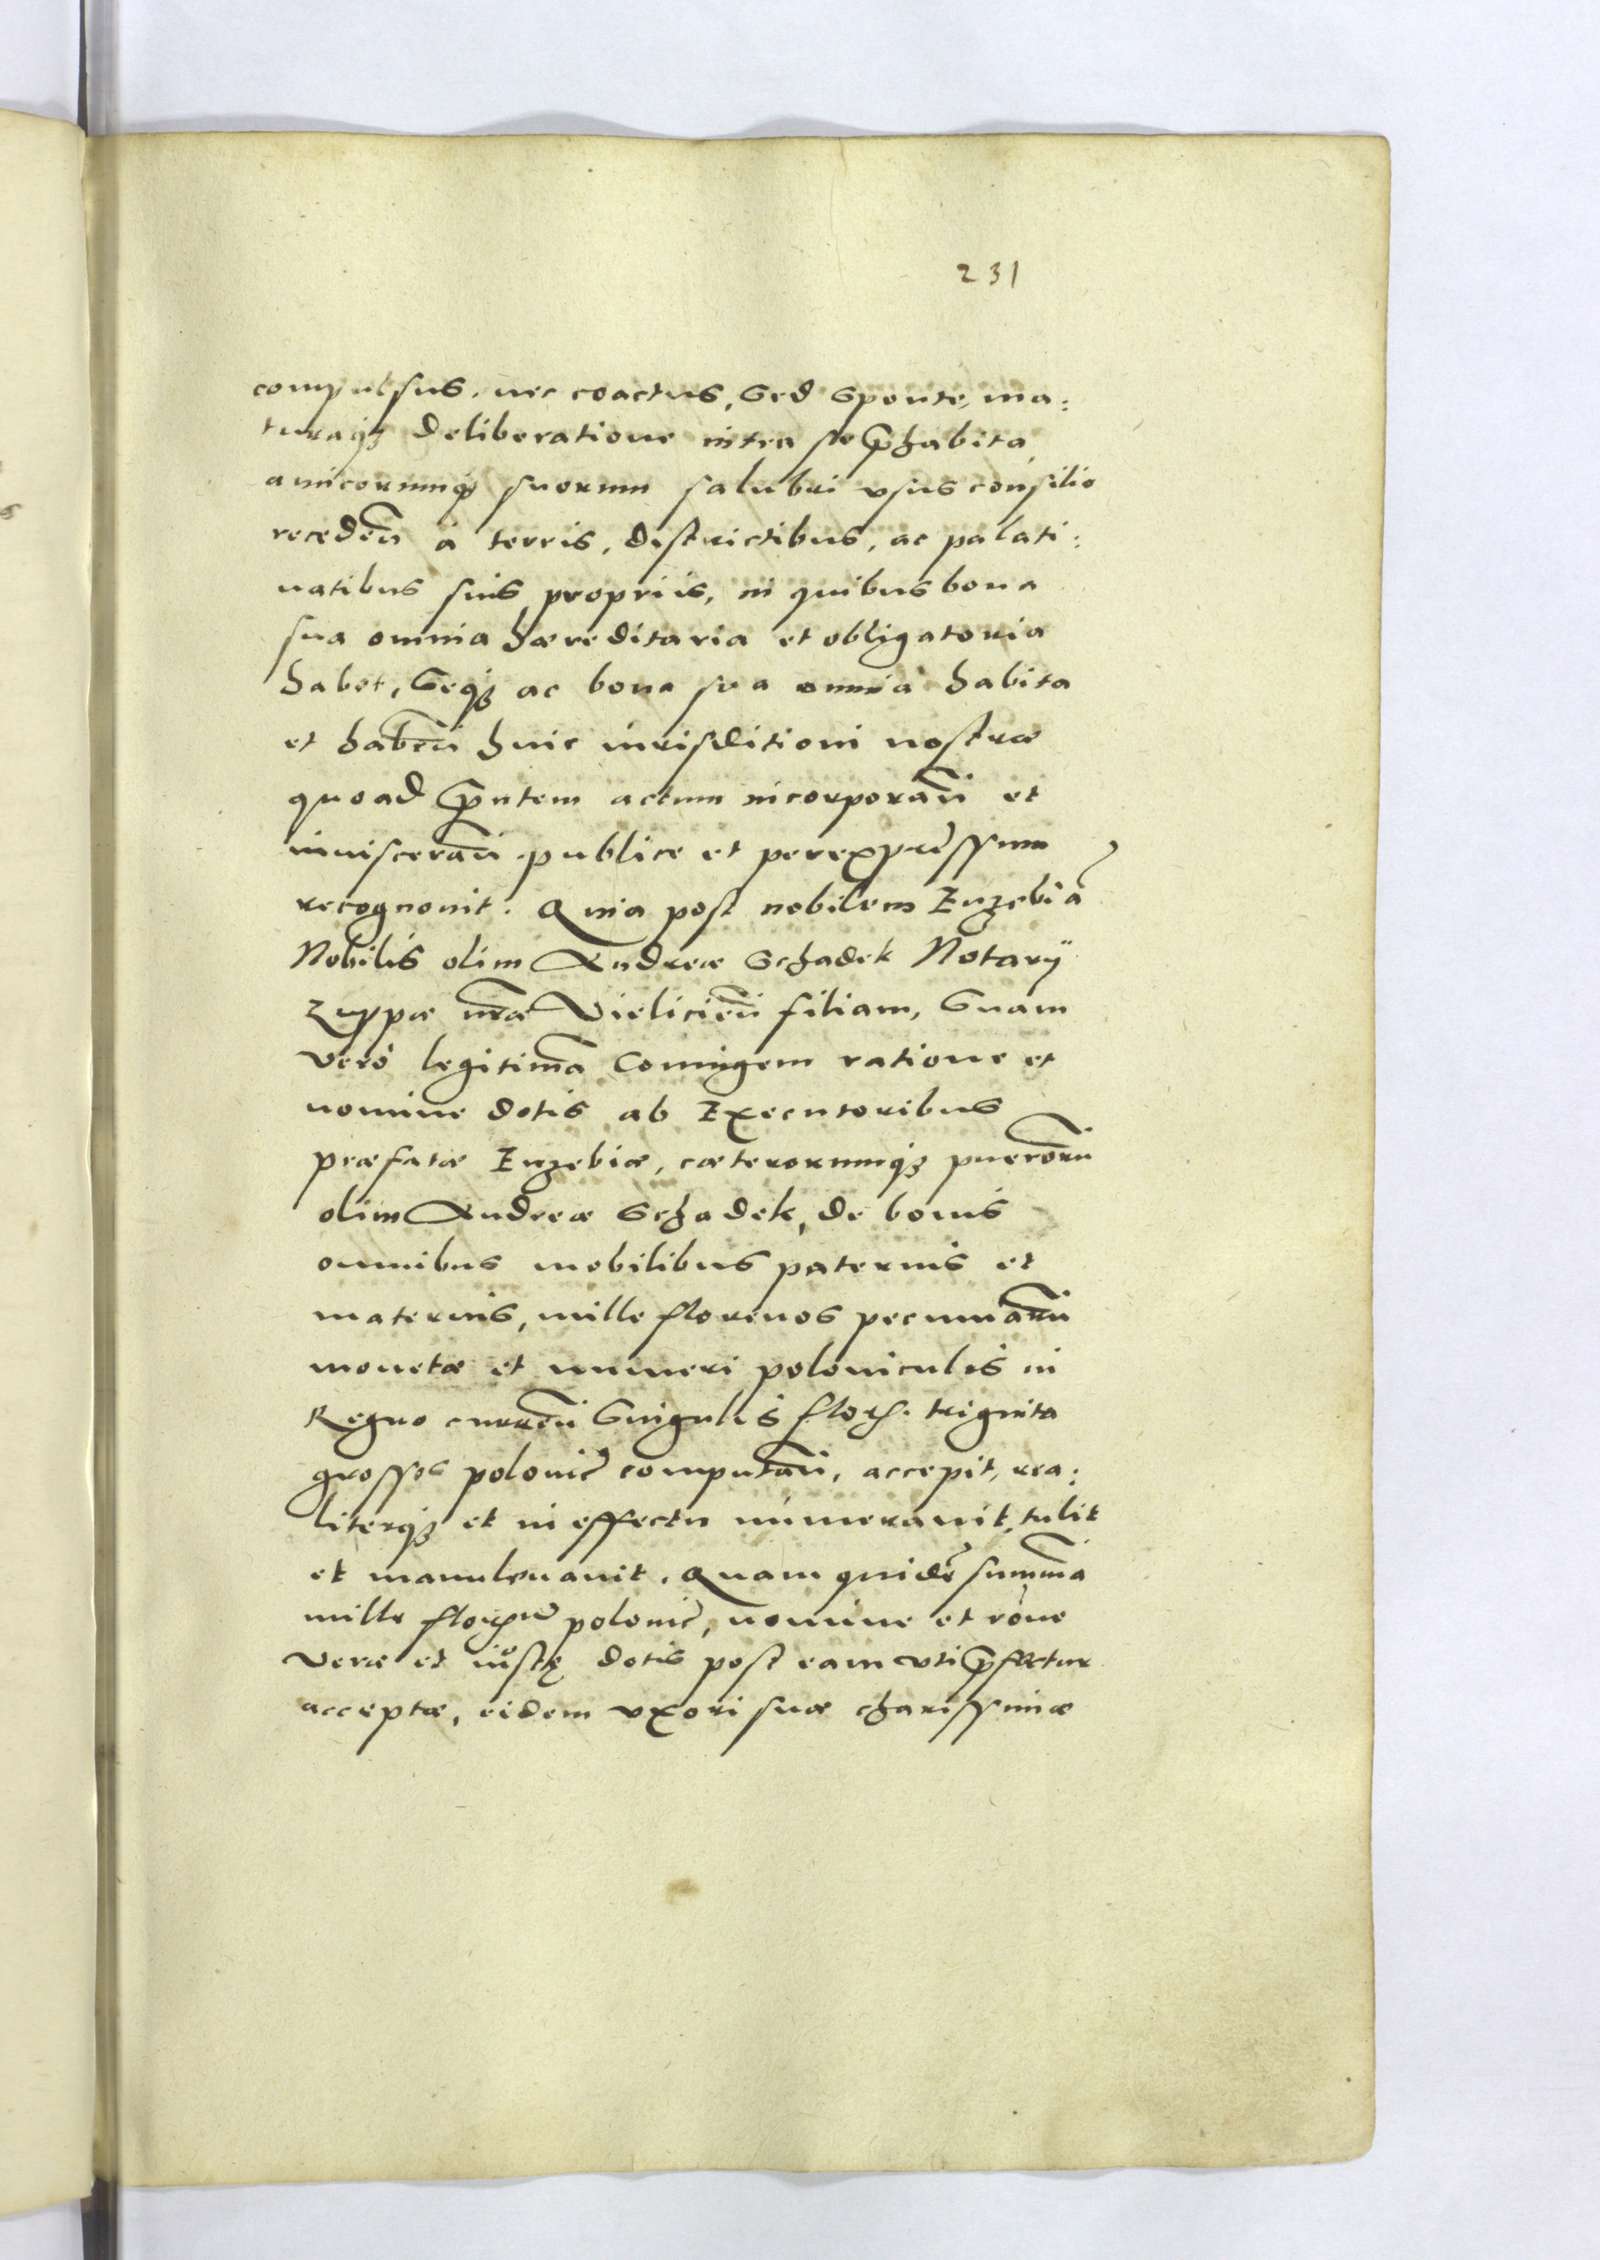 231
compulsus, nec coactus, Sed Sponte, ma:
turaq3 deliberatione intra se p̄habita
amicorumq3 suorum salubri vsus consilio
recedeñ a terris, districtibus, ac palati:
natibus suis propriis, in quibus bona
sua omnia hæreditaria et obligatoria
habet, Seq3 ac bona sua omnia habita
et habeñ huic iurisditioni nostræ
quoad p̄ntem actum incorporañ et
inuiscerañ publice et perexpressum
recognouit. Quia post nobilem Euzebiā
Nobilis olim Andreæ Schadek Notarÿ
Zuppæ nr̄æ Vielicieñ filiam, Suam
verò legitimā Coniugem ratione et
nomine dotis ab Executoribus
præfatæ Euzebiæ, cæterorumq3 puerorū
olim Andreæ Schadek, de bonis
omnibus mobilibus paternis et
maternis, mille florenos pecuniarū
monetæ et numeri poloniculis in
Regno curreñ Singulis flor. triginta
grossos polonic̄ computañ, accepit, rea:
literq3 et in effectu numerauit, tulit
et manuleuauit. Quam quidē summā
mille florenr̄ polonic̄, nomine et rōne
veræ et iustę dotis post eam vti p̄fertur
acceptæ, eidem vxori suæ charissimæ